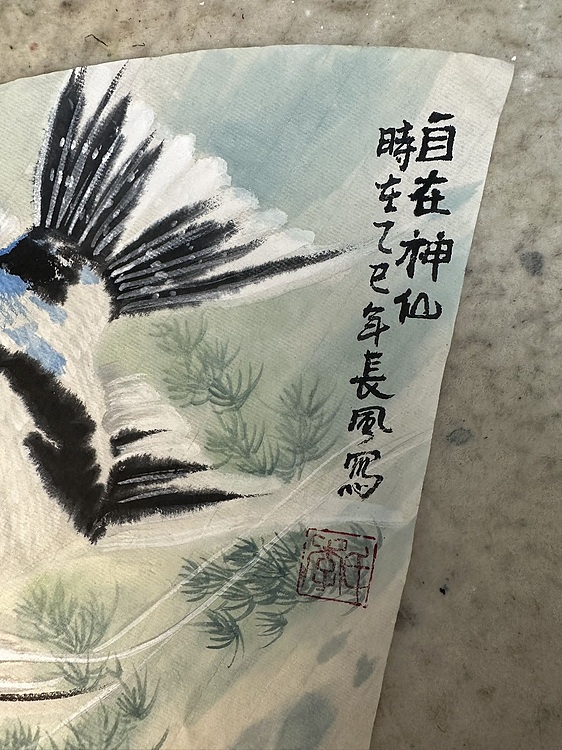 自在神仙
時在乙巳年長風寫